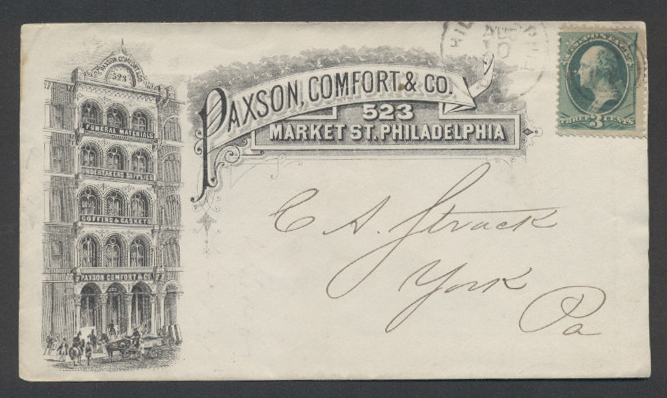 PAXSON COMFORT & CO.
523
FUNERAL MATERIALS
UNDERTAKERS SUPPLIES
COFFINS & CASKETS
PAXSON COMFORT & CO.
PAXSON, COMFORT & CO.
523
MARKET ST. PHILADELPHIA
U.S. POSTAGE
THREE 3 CENTS
C A. Strack
York
Pa